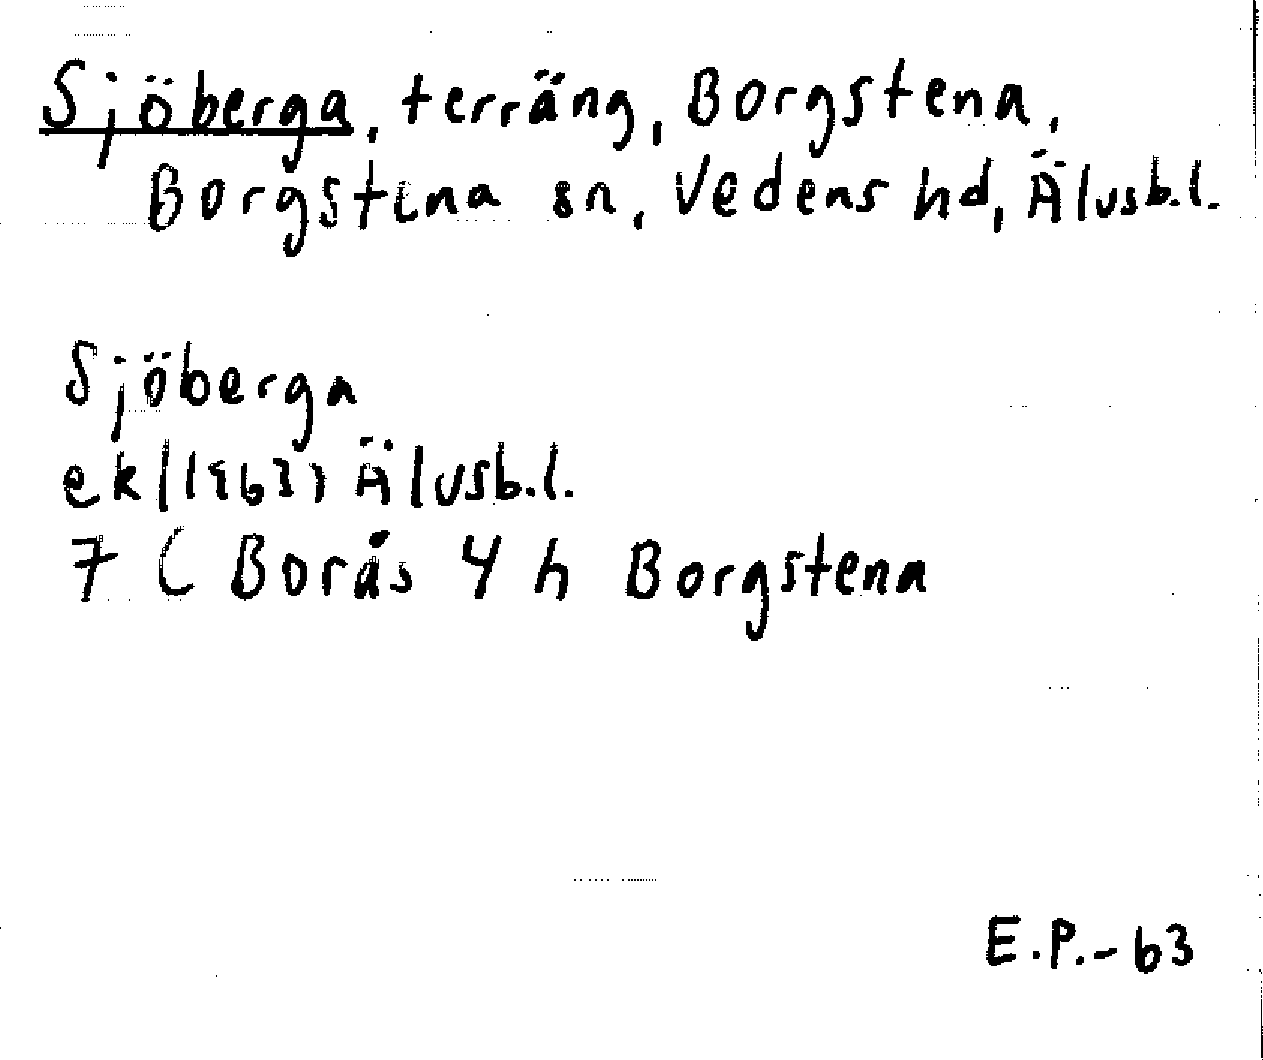 Sjöberga, terräng, Borgstena,
Borgstena sn, Vedens hd, Älvsb.l.
Sjöberga
ek (1963) Älvsb.l.
7 C Borås 4 h Borgstena
E.P.-63